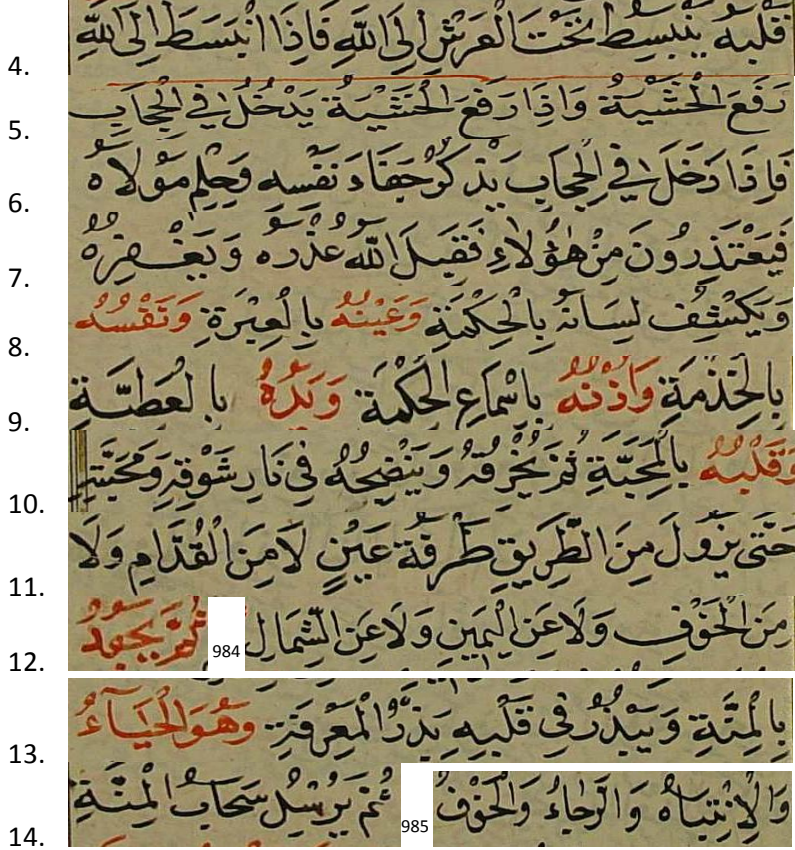 4. قَلْبُهُ يَنْبَسِطُ تَحْتَ الْعَرْشِ اِلَى اللّٰهِ فَاِذَا انْبَسَطَ اِلَى اللّٰهِ
5. رَفَعَ الْخَشْيَةَ وَاِذَا رَفَعَ الْخَشْيَةَ يَدْخُلُ فِي الْحِجَابِ
6. فَاِذَا دَخَلَ فِي الْحِجَابِ يَذْكُرُ جَفَاءَ نَفْسِهِ وَحِلْمِ مَوْلَاهُ
7. فَيَعْتَذِرُونَ مِنْ هٰؤُلَاءِ فَقَبِلَ اللّٰهُ عُذْرَهُ وَيَغْفِرُهُ
8. وَيَكْشِفُ لِسَانَهُ بِالْحِكْمَةِ وَعَيْنُهُ بِالْعِبْرَةِ وَنَفْسُهُ
9. بِالْخِدْمَةِ وَاُذْنُهُ بِاسْمَاعِ الْحِكْمَةِ وَيَدُهُ بِالْعَطِيَّةِ
10. وَقَلْبُهُ بِالْمَحَبَّةِ ثُمَّ يُحْرِقُهُ وَيَنْضِجُهُ فِي نَارِ شَوْقِهِ وَمَحَبَّتِهِ
11. حَتَّى يَزُولَ مِنَ الطَّرِيقِ طَرْفَةَ عَيْنٍ لَا مِنَ الْقُدَّامِ وَلَا
12. مِنَ الْخَوْفِ وَلَا عَنِ الْيَمِينِ وَلَا عَنِ الشِّمَالِ 984 ثُمَّ
13. بِالْمِنَّةِ وَيَبْذُرُ فِي قَلْبِهِ بَذْرَ الْمَعْرِفَةِ وَهُوَ الْحَيَآءُ
14. وَالْاِنْتِبَاهُ وَالرَّجَاءُ وَالْخَوْفُ 985 ثُمَّ يُرْسِلُ سَحَابَ الْمِنَّةِ